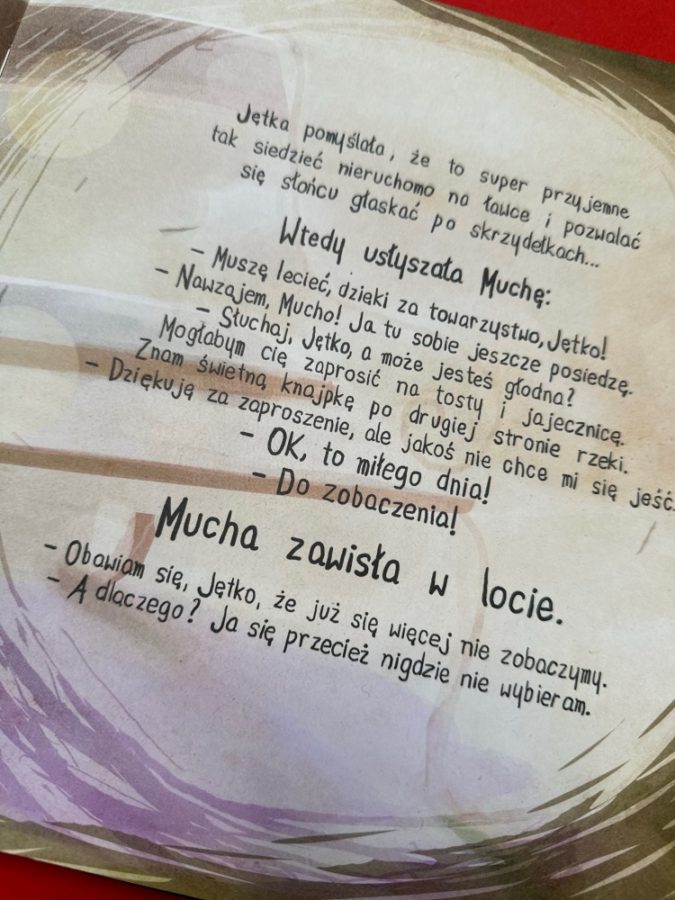 Jętka pomyślała, że to super przyjemne
tak siedzieć nieruchomo na ławce i pozwalać
się słońcu głaskać po skrzydełkach...
Wtedy usłyszała Muchę:
– Muszę lecieć, dzięki za towarzystwo, Jętko!
– Nawzajem, Mucho! Ja tu sobie jeszcze posiedzę.
– Słuchaj, Jętko, a może jesteś głodna?
Mogłabym cię zaprosić na tosty i jajecznicę.
Znam świetną knajpkę po drugiej stronie rzeki.
– Dziękuję za zaproszenie, ale jakoś nie chce mi się jeść.
– OK, to miłego dnia!
– Do zobaczenia!
Mucha zawisła w locie.
– Obawiam się, Jętko, że już się więcej nie zobaczymy.
– A dlaczego? Ja się przecież nigdzie nie wybieram.